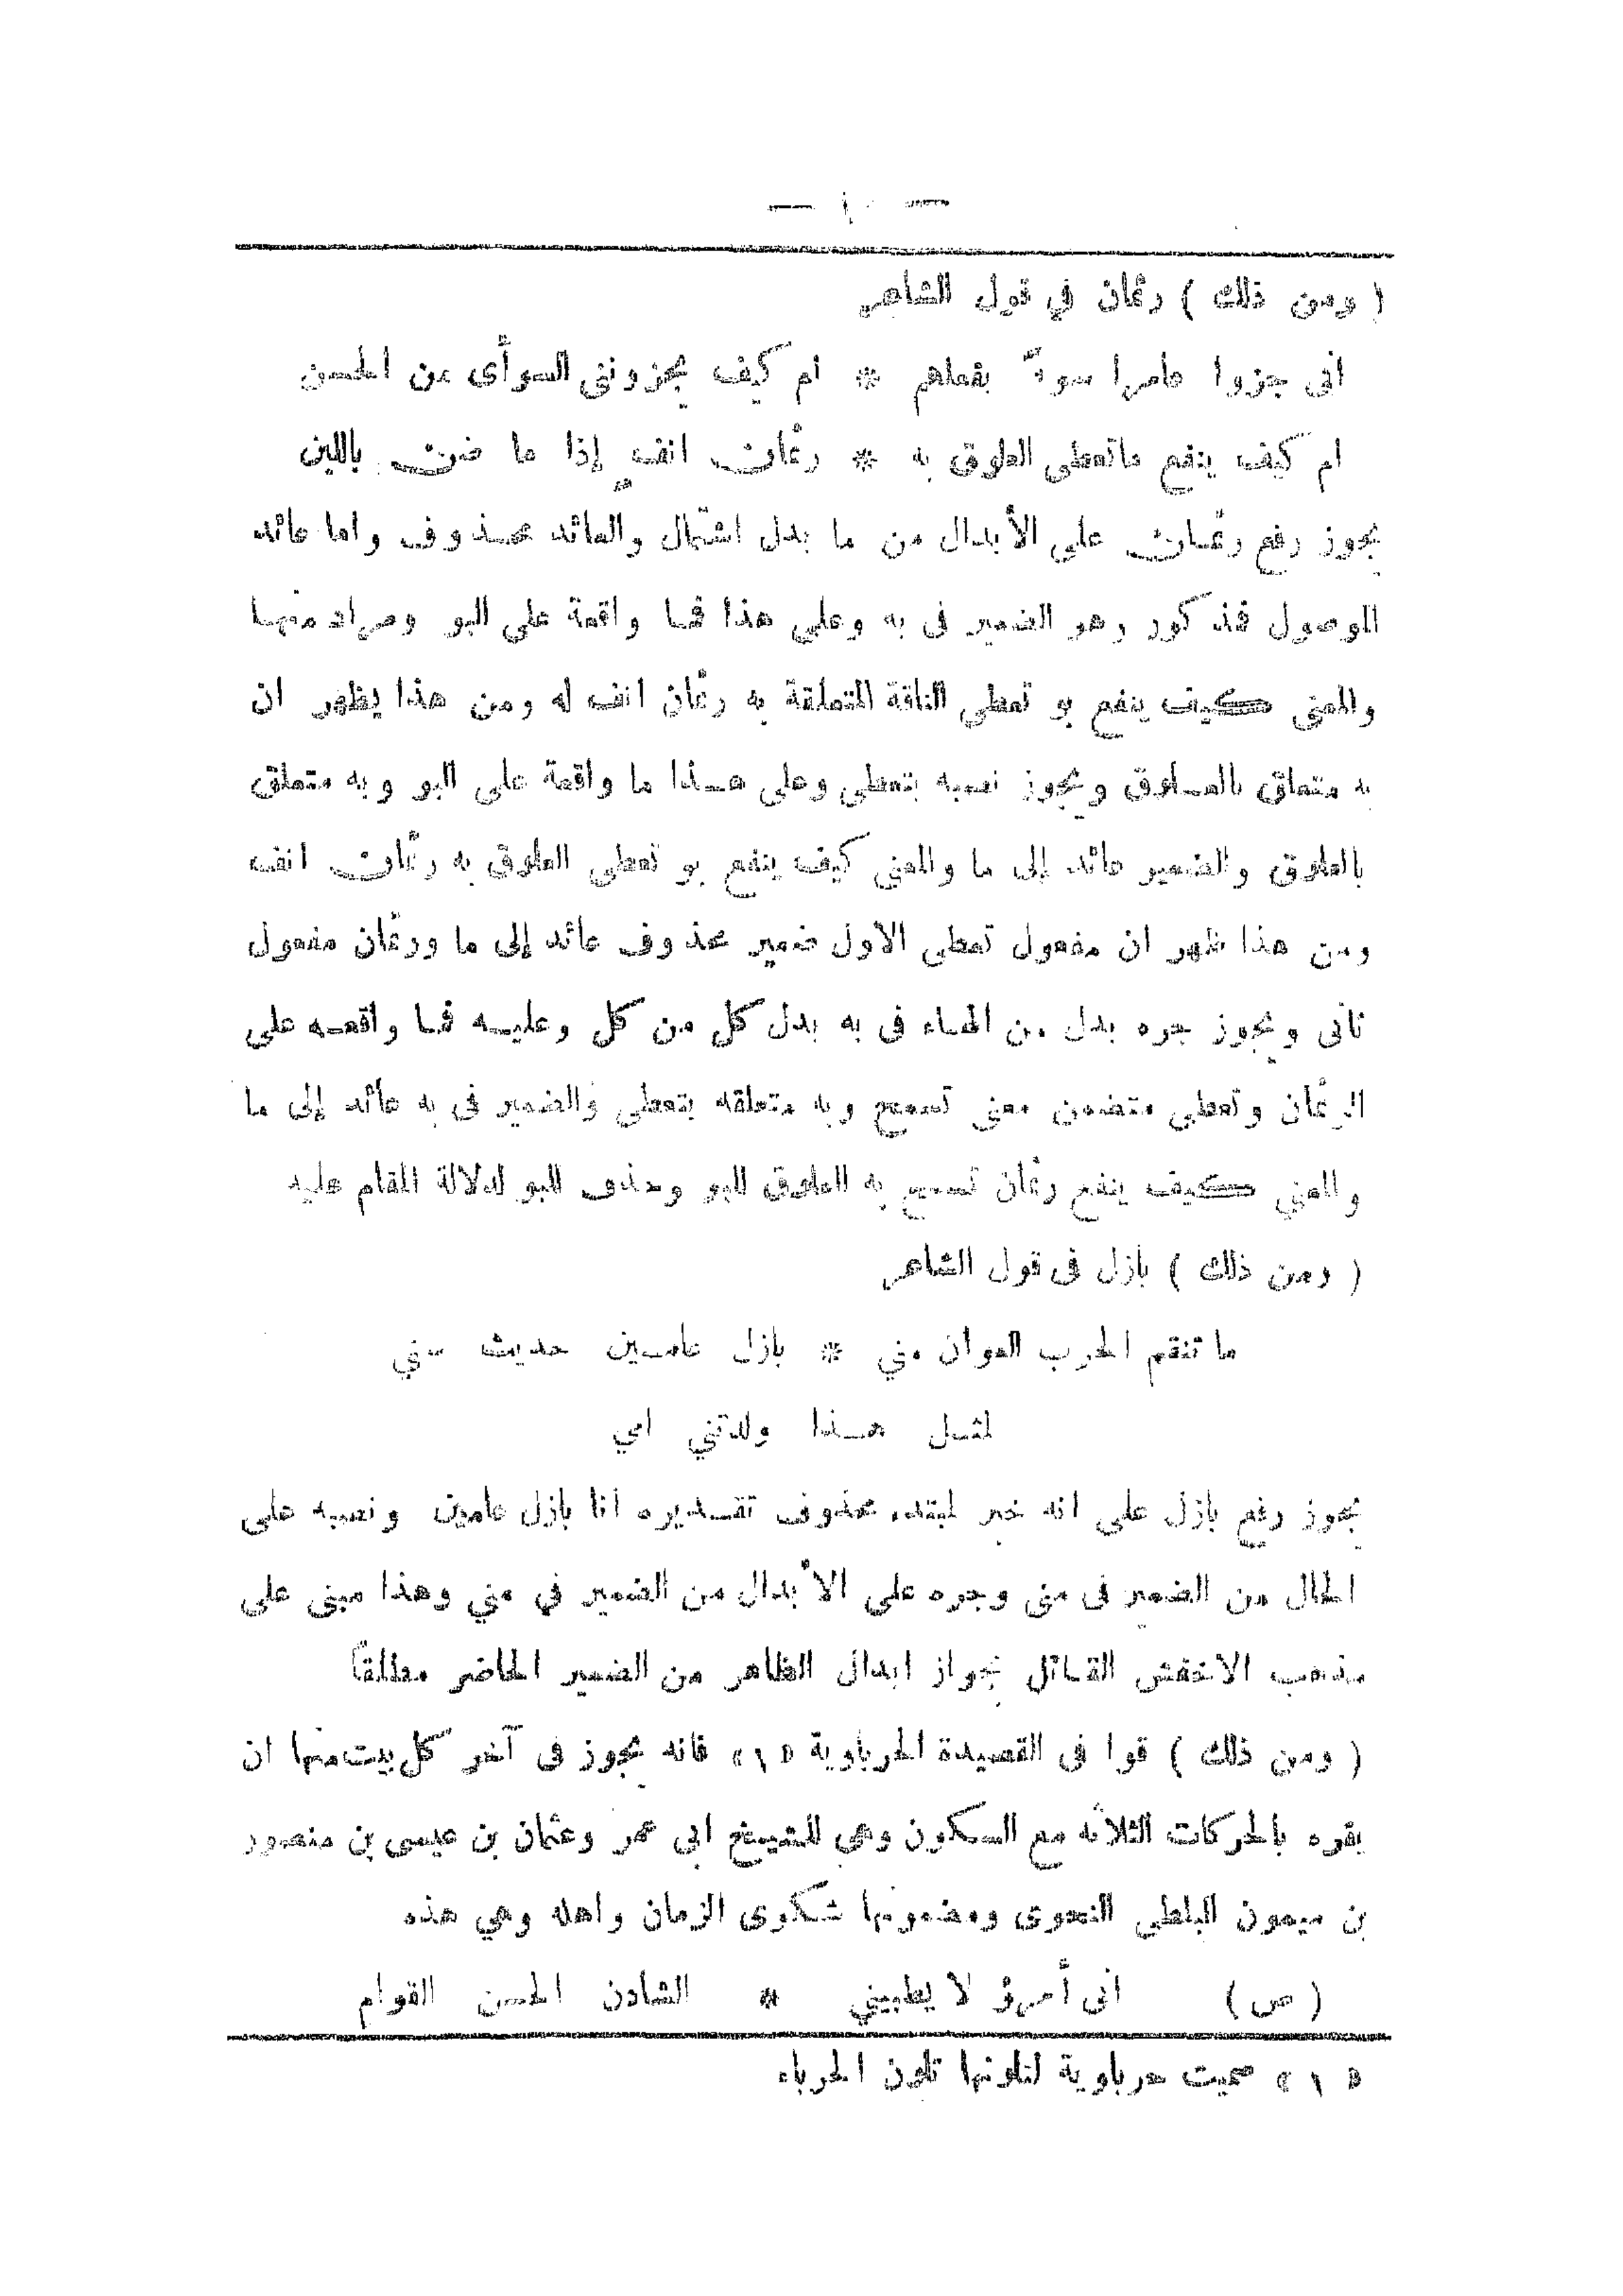 ( ومن ذلك ) رئمان في قول الشاعر
انى جزوا عامرا سوءً بفعلهم * ام كيف يجزونني السوأى من الحسن
ام كيف ينفع ماتعطى العلوق به * رئمان انفٍ إذا ما ضن باللبن
يجوز رفع رئمـان على الأبدال من ما بدل اشتمال والعائد محـذوف واما عائد
الموصول فمذكور وهو الضمير فى به وعلى هذا فمـا واقعة على البو ومراد منهـا
والمعنى كيف ينفع بو تعطى الناقة المتعلقة به رئمان انف له ومن هذا يظهر ان
به متعلق بالعـلوق ويجوز نصبه بتعطى وعلى هـذا ما واقعة على البو وبه متعلق
بالعلوق والضمير عائد إلى ما والمعنى كيف ينفع بو تعطى العلوق به رئمان انف
ومن هذا ظهر ان مفعول تعطى الاول ضمير محذوف عائد إلى ما ورئمان مفعول
ثانى ويجوز جره بدل من الهـاء فى به بدل كل من كل وعليـه فمـا واقعـه على
الرئمان وتعطى متضمن معنى تسمح وبه متعلقه بتعطى والضمير فى به عائد إلى ما
والمعنى كيف ينفع رئمان تسمح به العلوق للبو وحذف للبو لدلالة المقام عليه
( ومن ذلك ) بازل فى قول الشاعر
ما تنقم الحرب العوان مني * بازل عامـين حديث سني
لمثـل هـذا ولدتني امي
يجوز رفع بازل على انه خبر لمبتدء محذوف تقـديره انا بازل عامين ونصبه على
الحال من الضمير فى منى وجره على الأبدال من الضمير في مني وهذا مبنى على
مذهب الاخفش القـائل بجواز ابدال الظاهر من الضمير الحاضر مطلقاً
( ومن ذلك ) قوا فى القصيدة الحرباوية «١» فانه يجوز فى آخر كل بيت منها ان
يقره بالحركات الثلاثه مع السكون وهي للشيخ ابى عمر وعثمان بن عيسى بن منصور
بن ميمون البلطى النحوى ومضمونها شكوى الزمان واهله وهي هذه
( ص ) انى أمرؤ لا يطبيني * الشادن الحسن القوام
«١» سميت حرباوية لتلونها تلون الحرباء